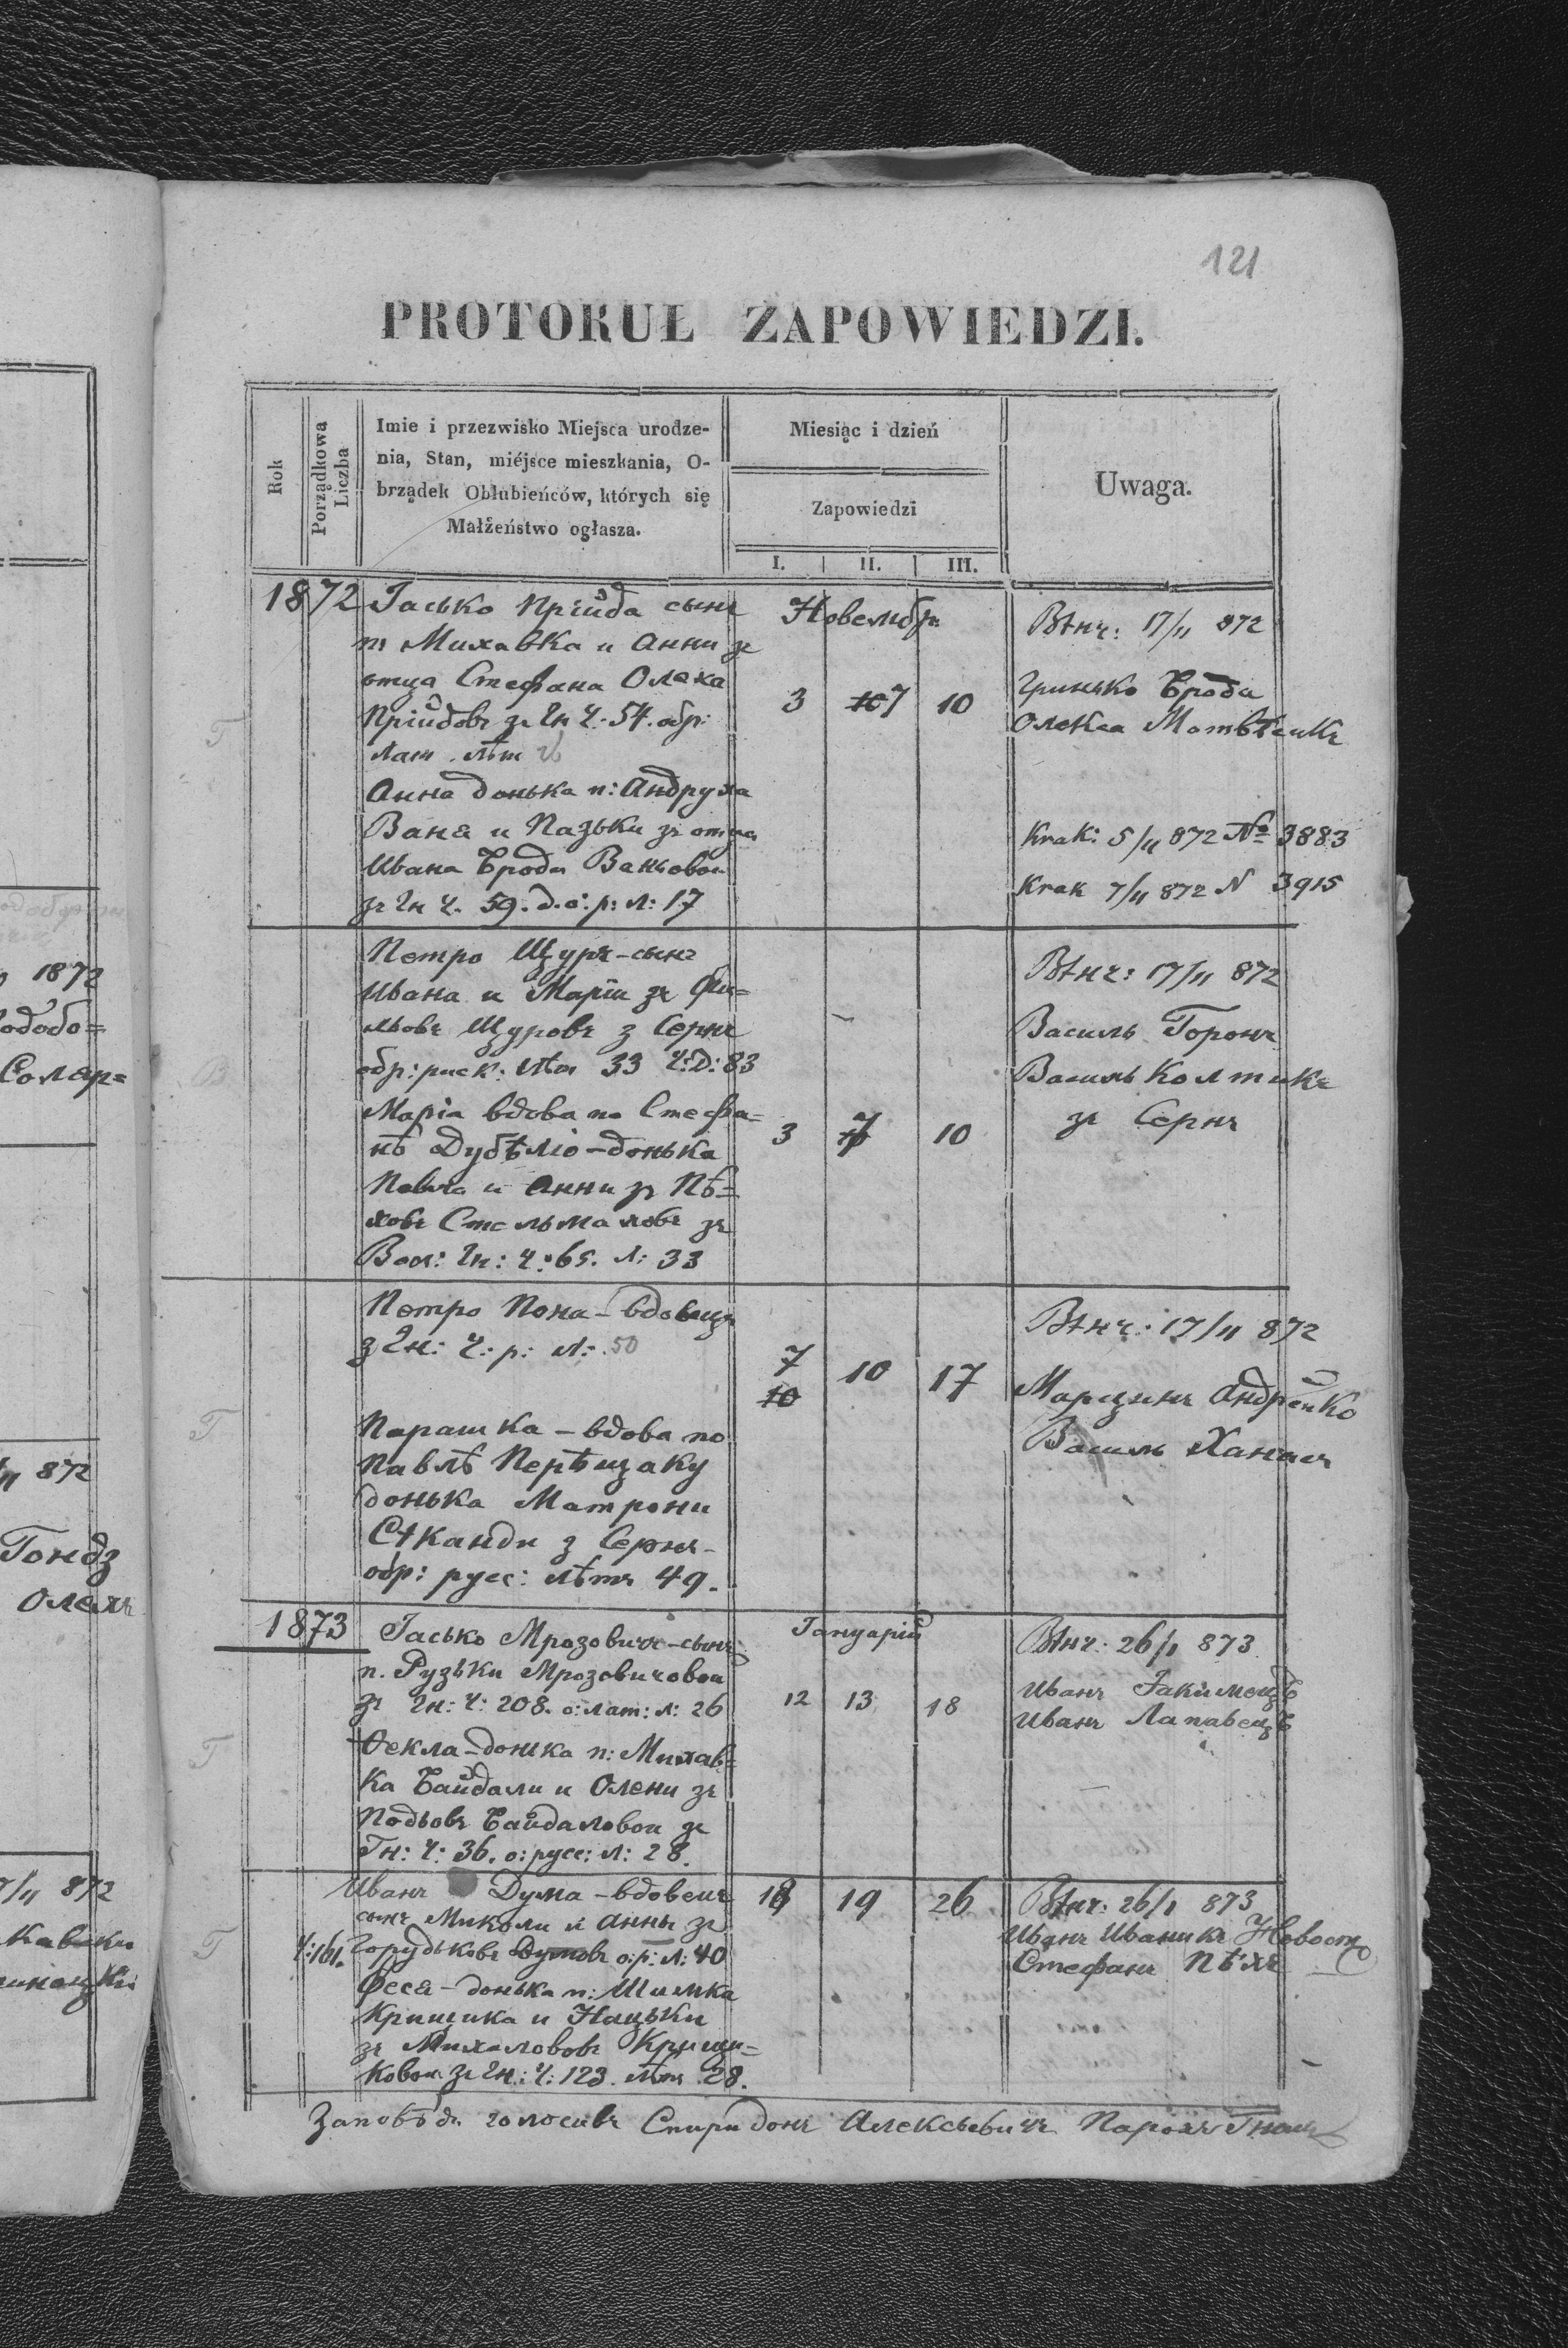 121
PROTOKUŁ ZAPOWIEDZI.
Rok
Porządkowa
Liczba
Imie i przezwisko Miejsca urodze-
nia, Stan, miéjsce mieszkania, O-
brządek Oblubieńców, których się
Małżeństwo ogłasza.
Miesiąc i dzień
Zapowiedzi
I. II. III.
Uwaga.
1872
Гасько Пріийда сынъ
п Михавка и Анни зъ
отца Стефана Олеха
Пріийдовъ зъ Гн Ч. 54. обр:
лат. лѣт
Анна донька п: Андруха
Ваня и Пазьки зъ отца
Ивана Брода Ваньовои
зъ Гн Ч. 59. д. о: р: л: 17
Новембр:
3 10 7 10
Вѣнч: 17/11 872
Гринько Брода
Олекса Матвѣикъ
Krak: 5/11 872 № 3883
Krak 7/11 872 N 3915
Петро Щуръ-сынъ
Ивана и Маріи зъ Фи=
льовъ Щуровъ з Сернъ
обр: руск: лѣт 33 Ч: Д: 83
Марія вдова по Стефа=
нѣ Дубѣлю-донька
Павла и Анни зъ Пѣ=
ховъ Стельмаховъ зъ
Вол: Гн: Ч: 65. л: 33
3 7 10
Вѣнч: 17/11 872
Василь Горонъ
Василь Колтикъ
зъ Сернъ
Петро Пона-вдовецъ
з Гн: Ч: р: л: 50
Парашка-вдова по
Павлѣ Перѣщаку
донька Матрони
Сѣканди з Сернъ-
обр: русс: лѣтъ 49.
7 10 17
10
Вѣнч: 17/11 872
Марцинъ Андрейко
Василь Ханасъ
1873
Гасько Мрозовичъ-сынъ
п. Рузьки Мрозовичовои
зъ Гн: Ч: 208. о: лат: л: 26
Ѳекла-донька п: Михав=
ка Байдали и Олени зъ
Подьовъ Байдаловои зъ
Гн: Ч: 36. о: русс: л: 28.
Іануарій
12 13 18
Вѣнч: 26/1 873
Иванъ Іакимецъ
Иванъ Лапавецъ
Иванъ Дума-вдовецъ
сынъ Миколи и Анны зъ
Ч: 161. Горудьковъ Думовъ о: р: л: 40
Феся-донька п: Шимка
Крищика и Нацьки
зъ Михаловъ Крищи=
ковои зъ Гн: Ч: 123. лѣт 28.
18 19 26
Вѣнч: 26/1 873
Иванъ Иваникъ
Стефанъ Пѣхъ
Заповѣди голосивъ Спиридонъ Алексѣевичъ Парохъ